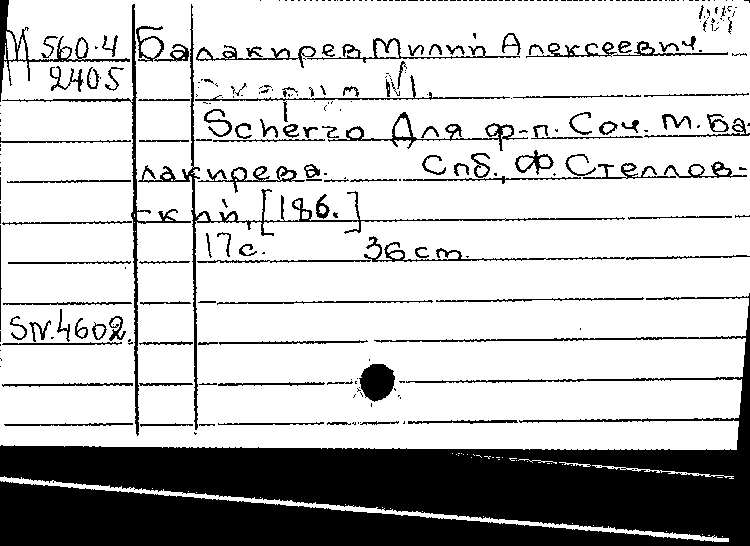 М 560-4 Балакирев, Милий Алексеевич.
2405
Скерцо №1.
Scherzo Для ф-п. Соч. М. Ба-
лакирева. Спб., Ф. Стеллов-
ский, [186.]
17с. 36 cm.
SN.4602.